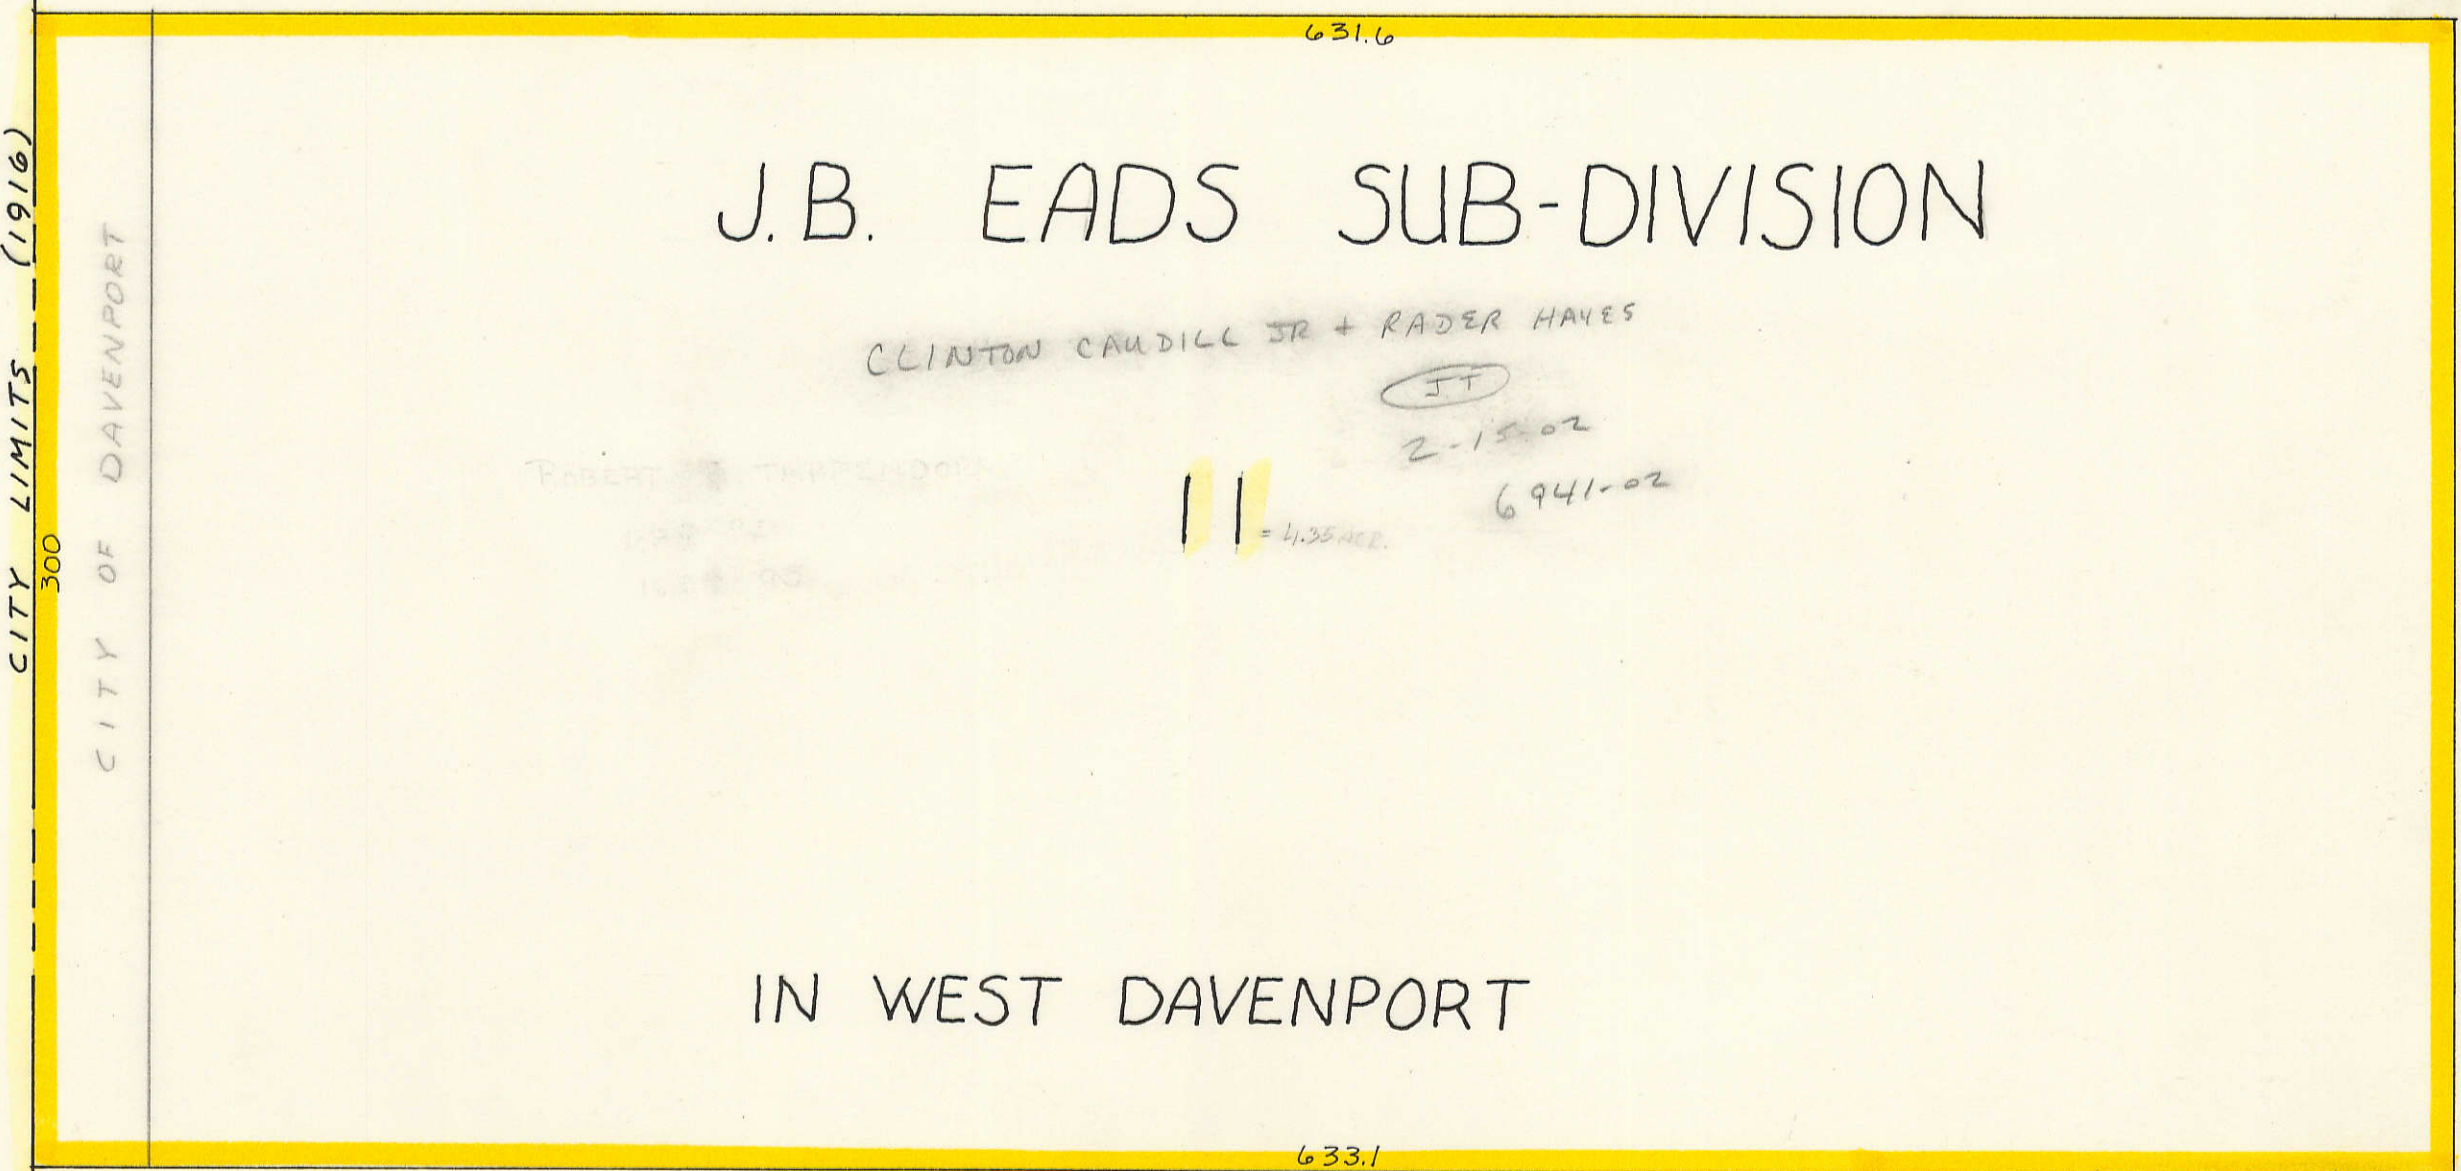 631.6
CITY LIMITS (1916)
300
CITY OF DAVENPORT
J.B. EADS SUB-DIVISION
CLINTON CAUDILL JR + RADER HAYES
JT
2-15-02
6941-02
11 = 4.35 ACR.
ROBERT
IN WEST DAVENPORT
633.1